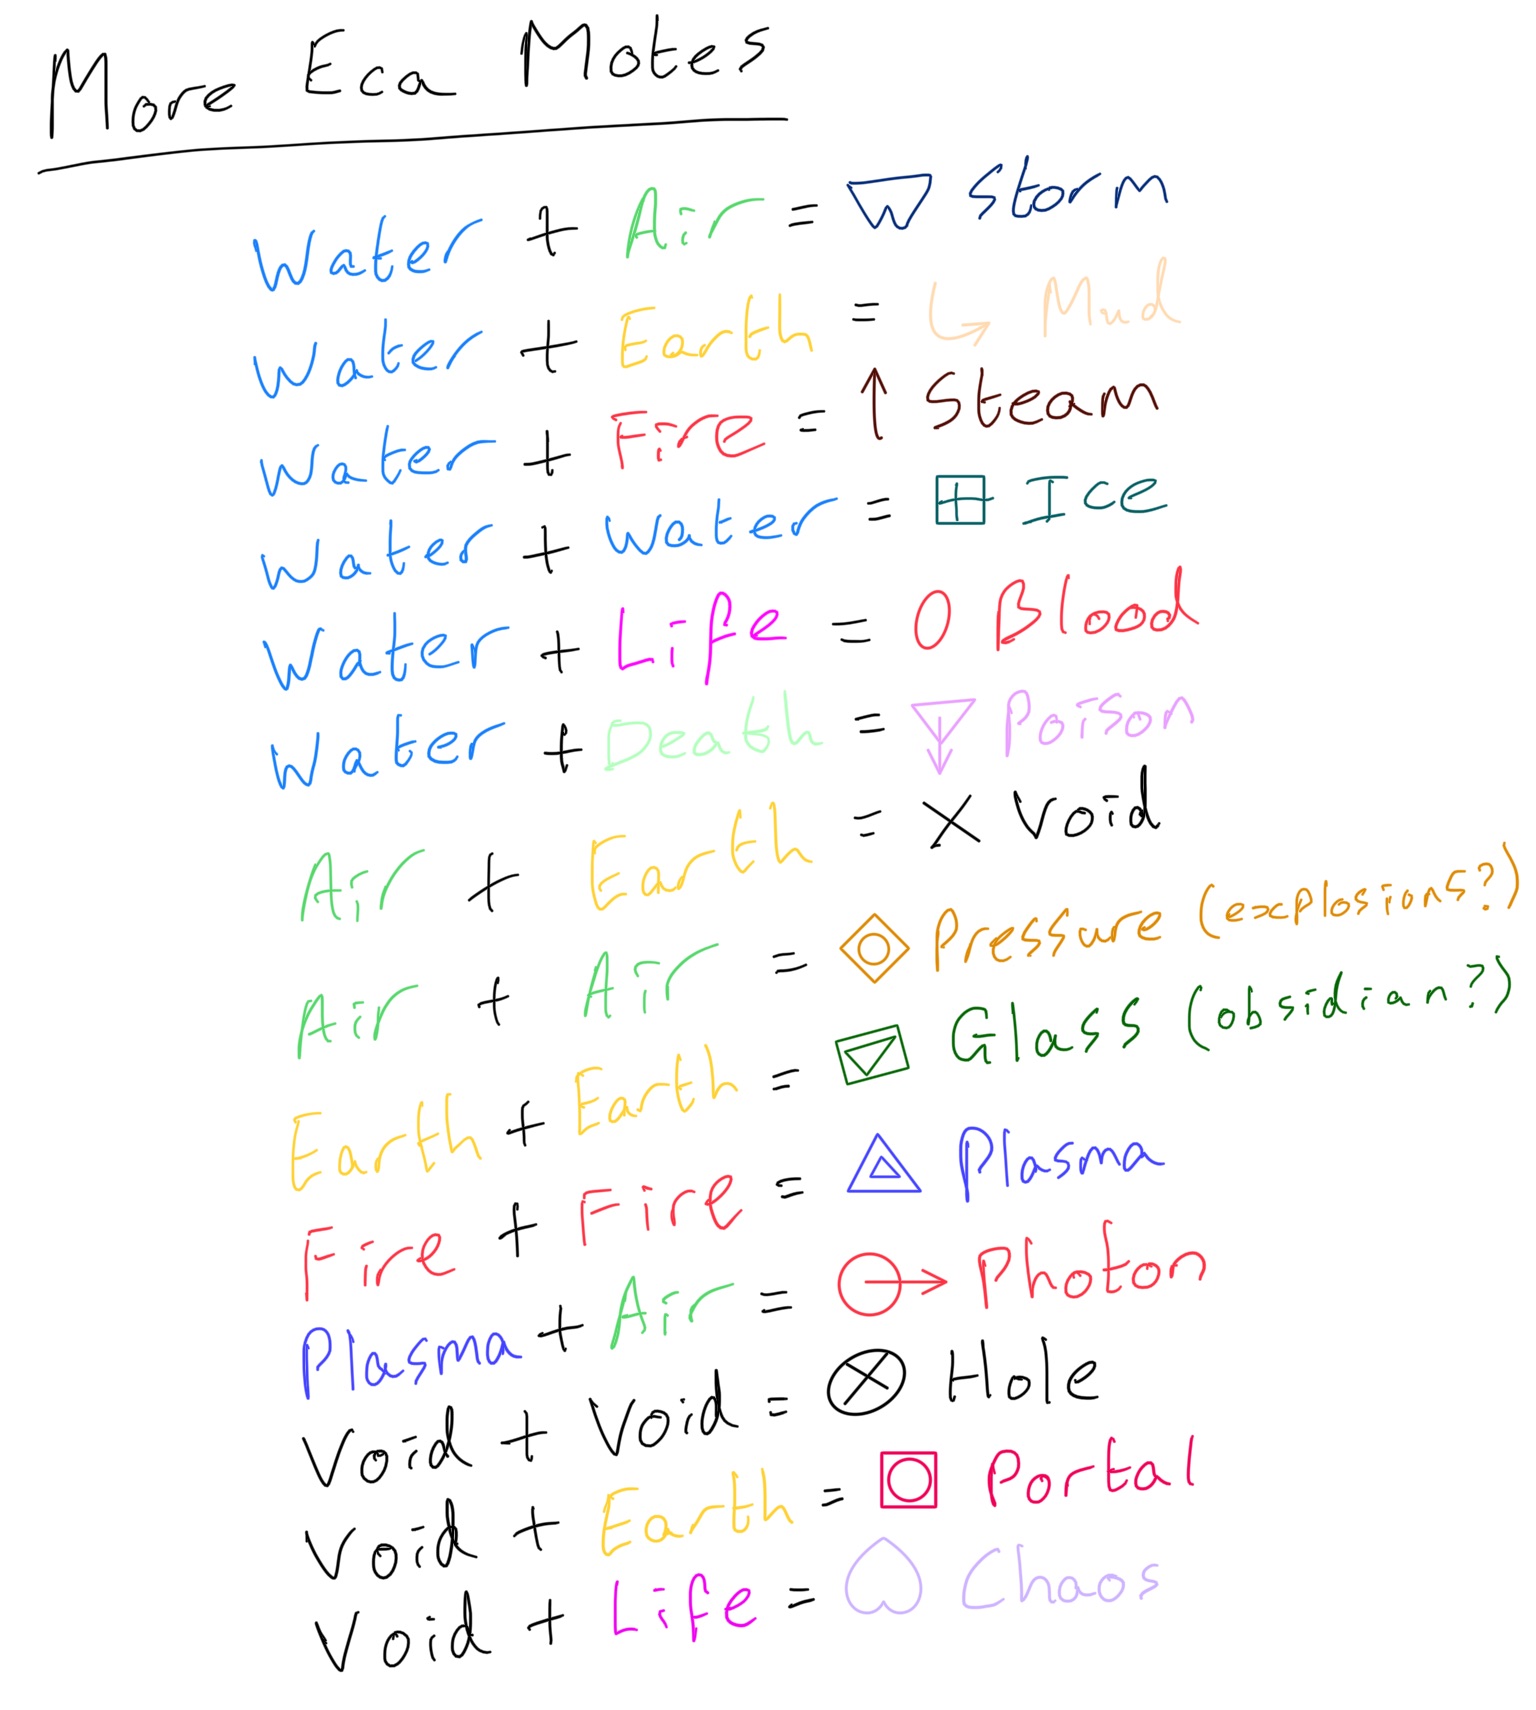 More Eca Motes
Water + Air = Storm
Water + Earth = Mud
Water + Fire = Steam
Water + Water = Ice
Water + Life = Blood
Water + Death = Poison
Air + Earth = Void
Air + Air = Pressure (explosions?)
Earth + Earth = Glass (obsidian?)
Fire + Fire = Plasma
Plasma + Air = Photon
Void + Void = Hole
Void + Earth = Portal
Void + Life = Chaos